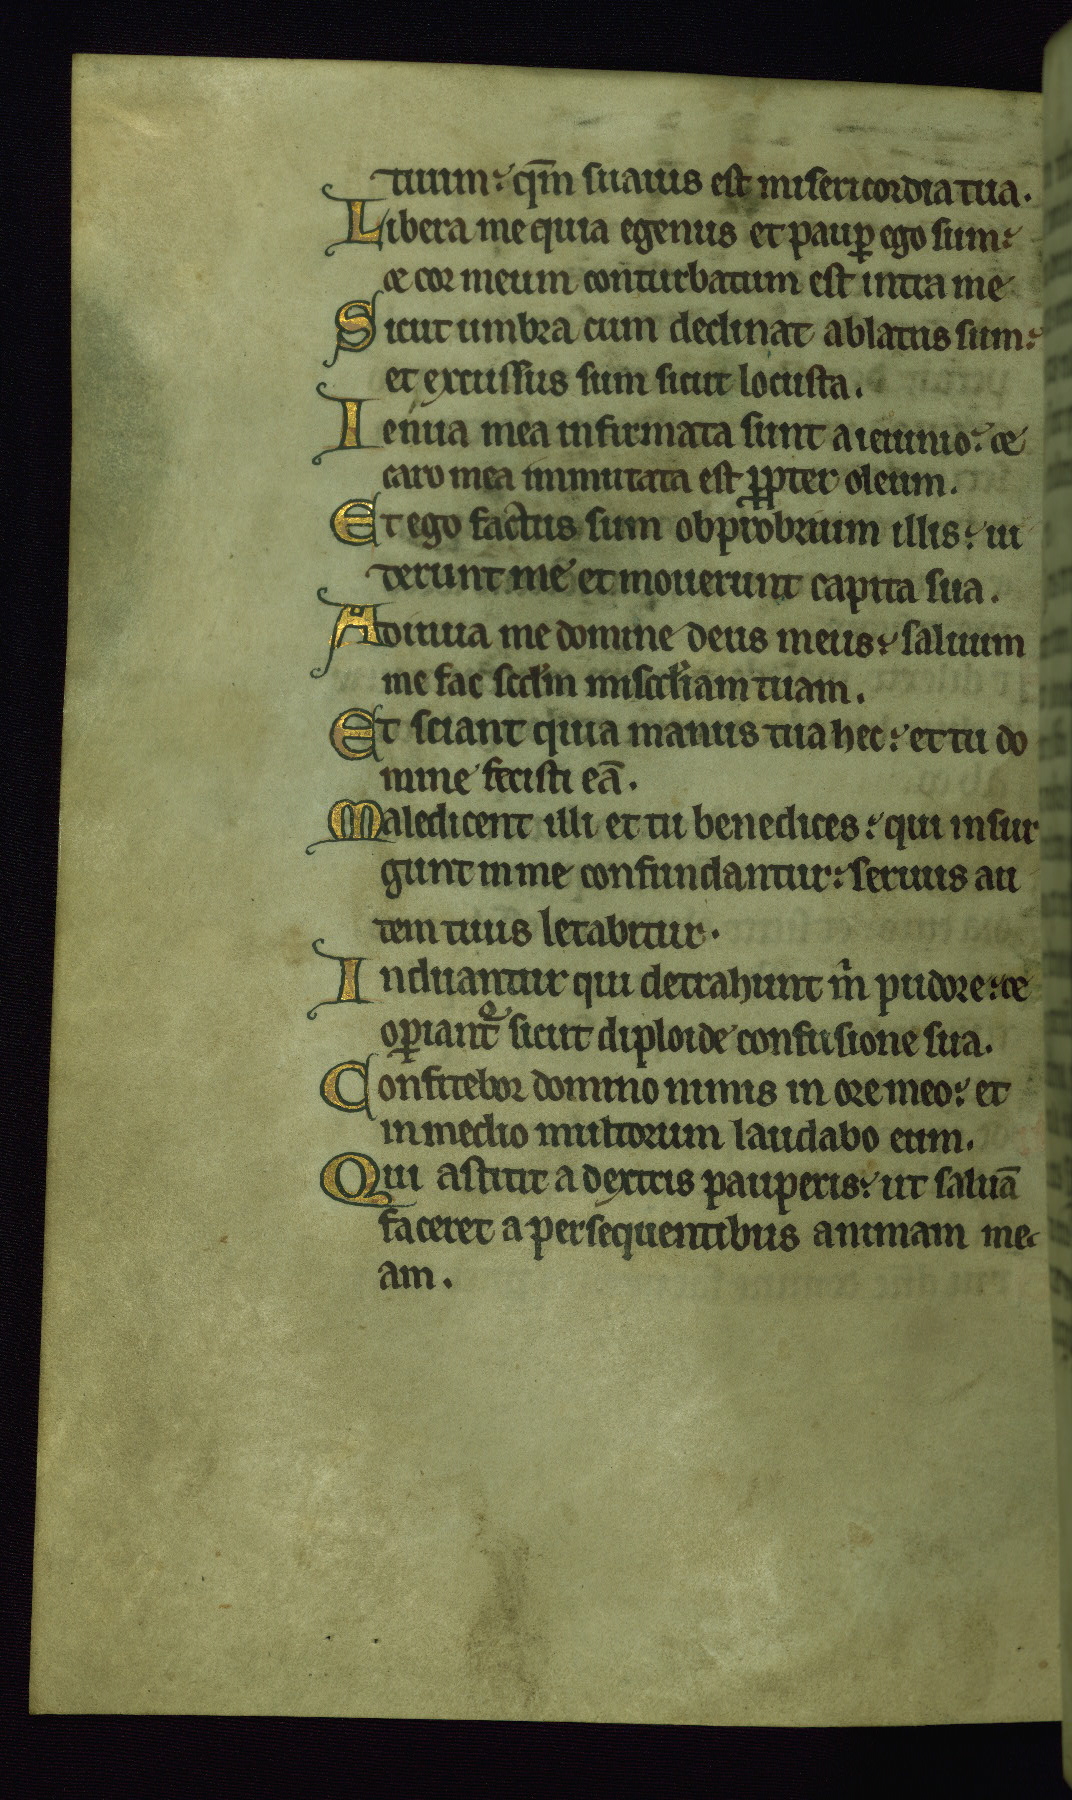 tuum: qm̄ suauis est misericordia tua.
Libera me quia egenus et paup̱ ego sum:
& cor meum conturbatum est intra me
Sicut umbra cum declinat ablatus sum:
et excussus sum sicut locusta.
Ienua mea infirmata sunt a ieiunio: &
caro mea immutata est p̱pter oleum.
Et ego factus sum obprobrium illis: ui
derunt me et mouerunt capita sua.
Adiuua me domine deus meus: saluum
me fac scd̄m misc̄diam tuam.
Et sciant quia manus tua hec: et tu do
mine fecisti eā.
Maledicent illi et tu benedices: qui insur
gunt in me confundantur: seruus au
tem tuus letabitur.
Induantur qui detrahunt m̄ pudore: &
op̱iant᷑ sicut diploide confusione sua.
Confitebor domino nimis in ore meo: et
in medio multorum laudabo eum.
Qui astitit a dextris pauperis: ut saluā
faceret a persequentibus animam me
am.